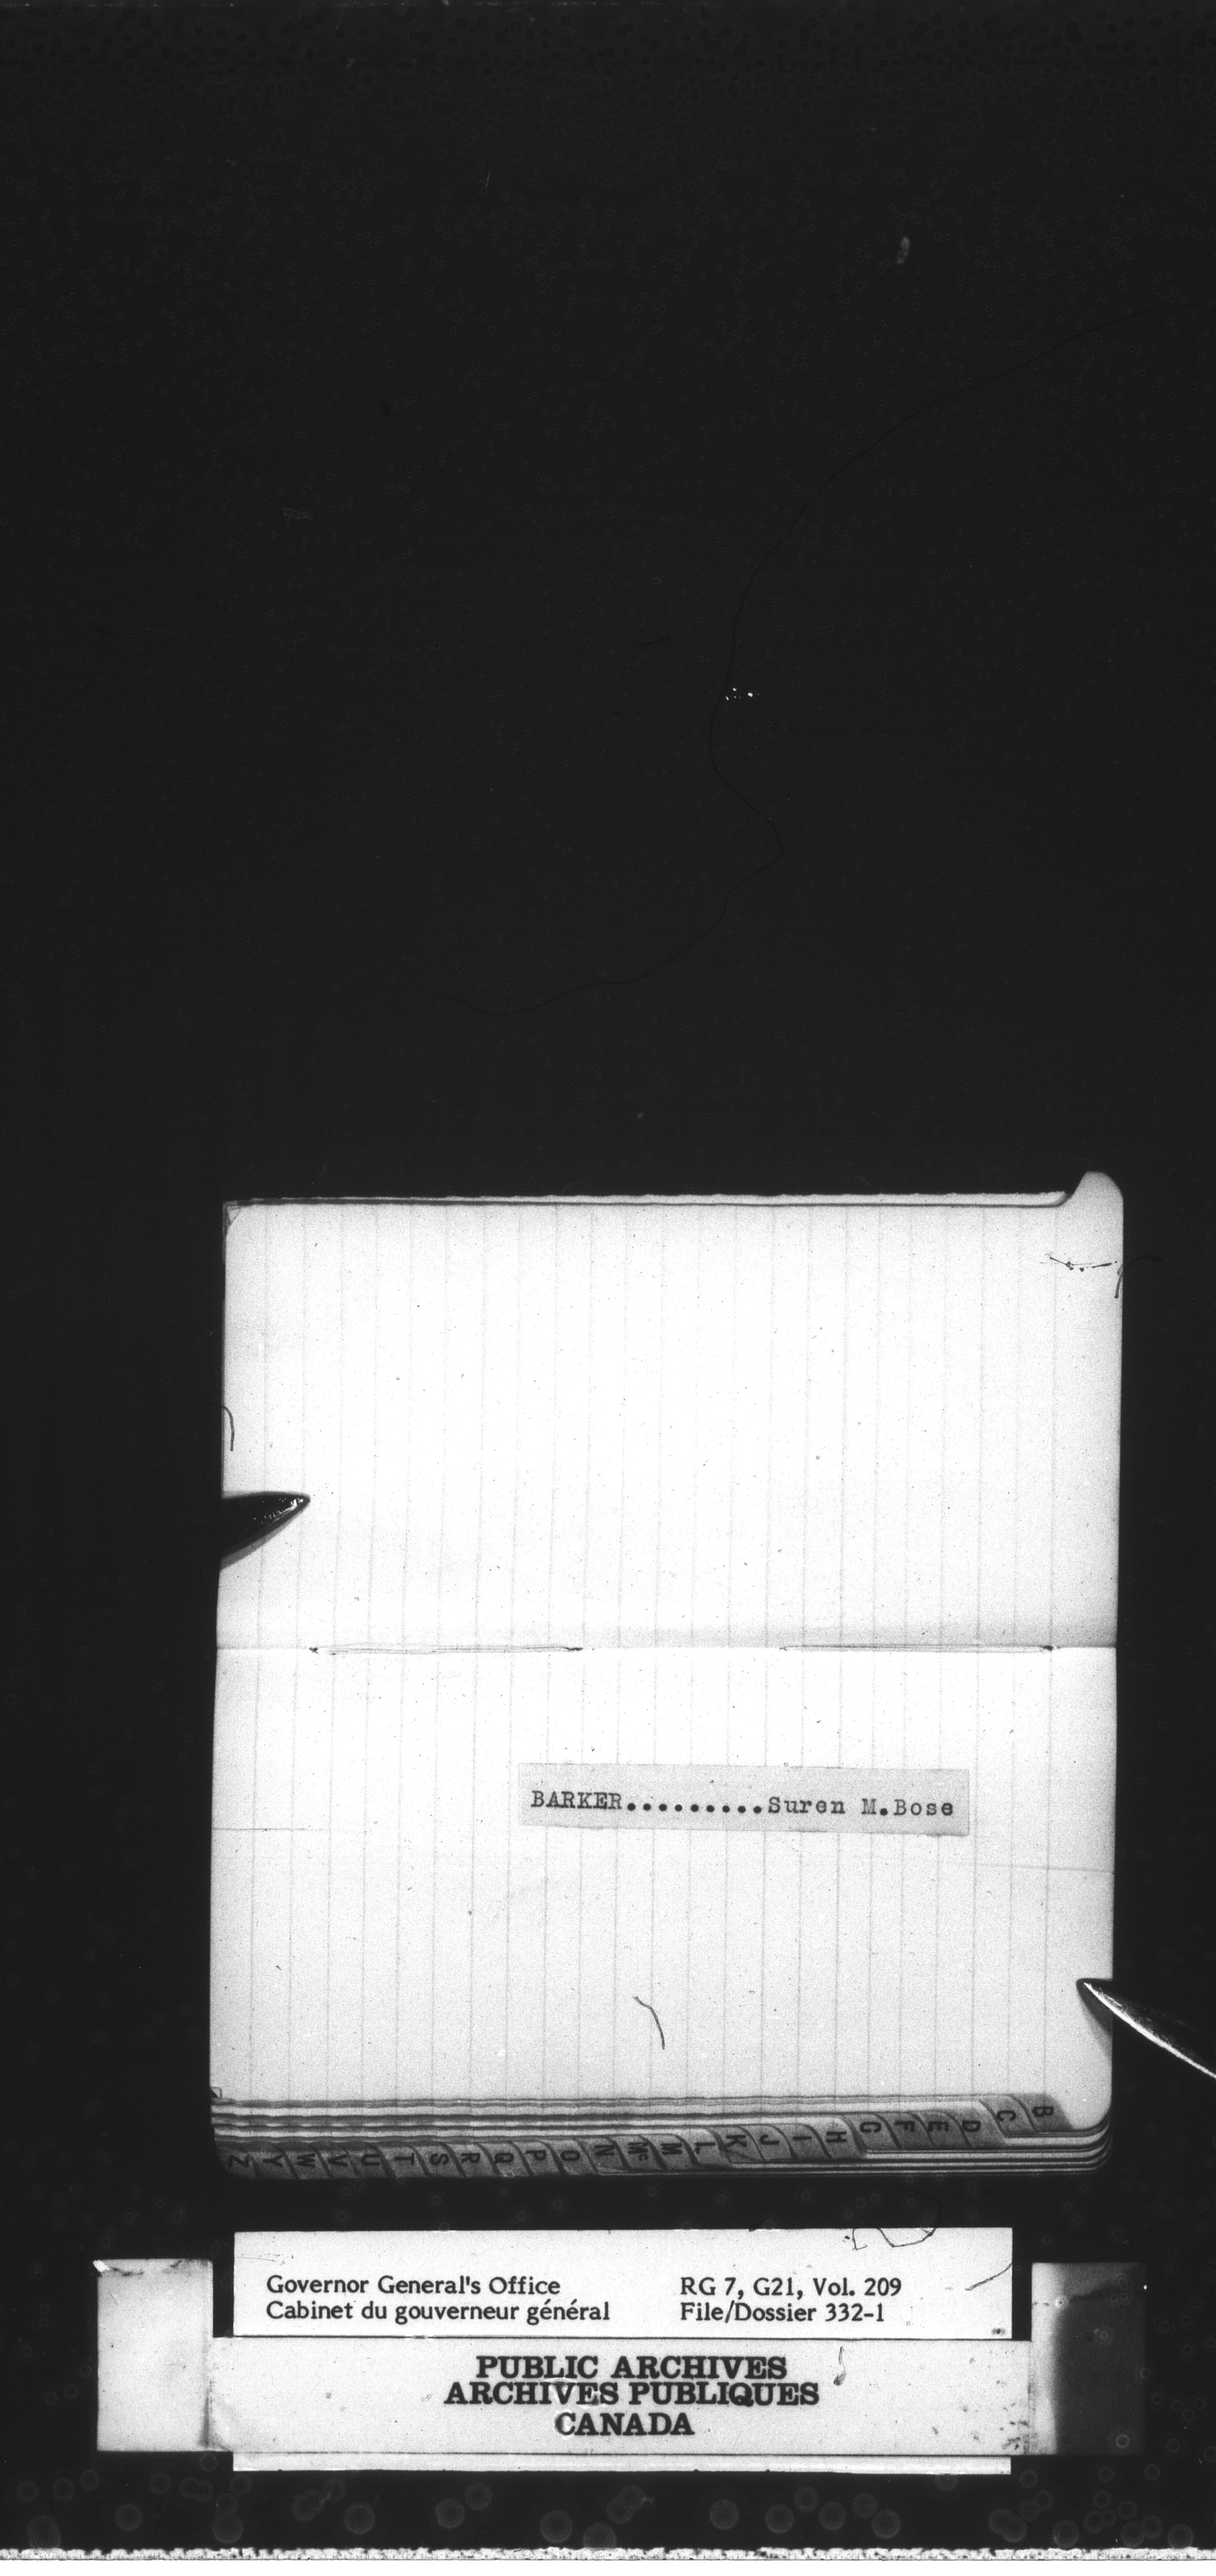 BARKER.........Suren M.Bose
B
C
D
E
F
G
H
I
J
K
L
M
Mc
N
O
P
Q
R
S
T
U
V
W
Y
Z
Governor General's Office RG 7, G21, Vol. 209
Cabinet du gouverneur général File/Dossier 332-1
PUBLIC ARCHIVES
ARCHIVES PUBLIQUES
CANADA